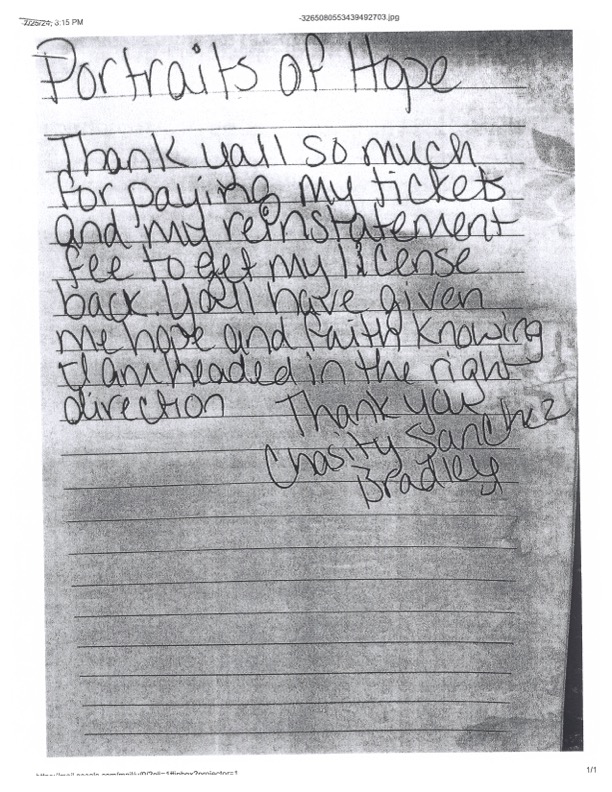 3:15 PM
-3265080553439492703.jpg
Portraits of Hope
Thank yall so much
for paying my tickets
and my reinstatement
fee to get my license
back. Yall have given
me hope and faith knowing
I am headed in the right
direction
Thank you
Chasity Sanchez
Bradley
1/1